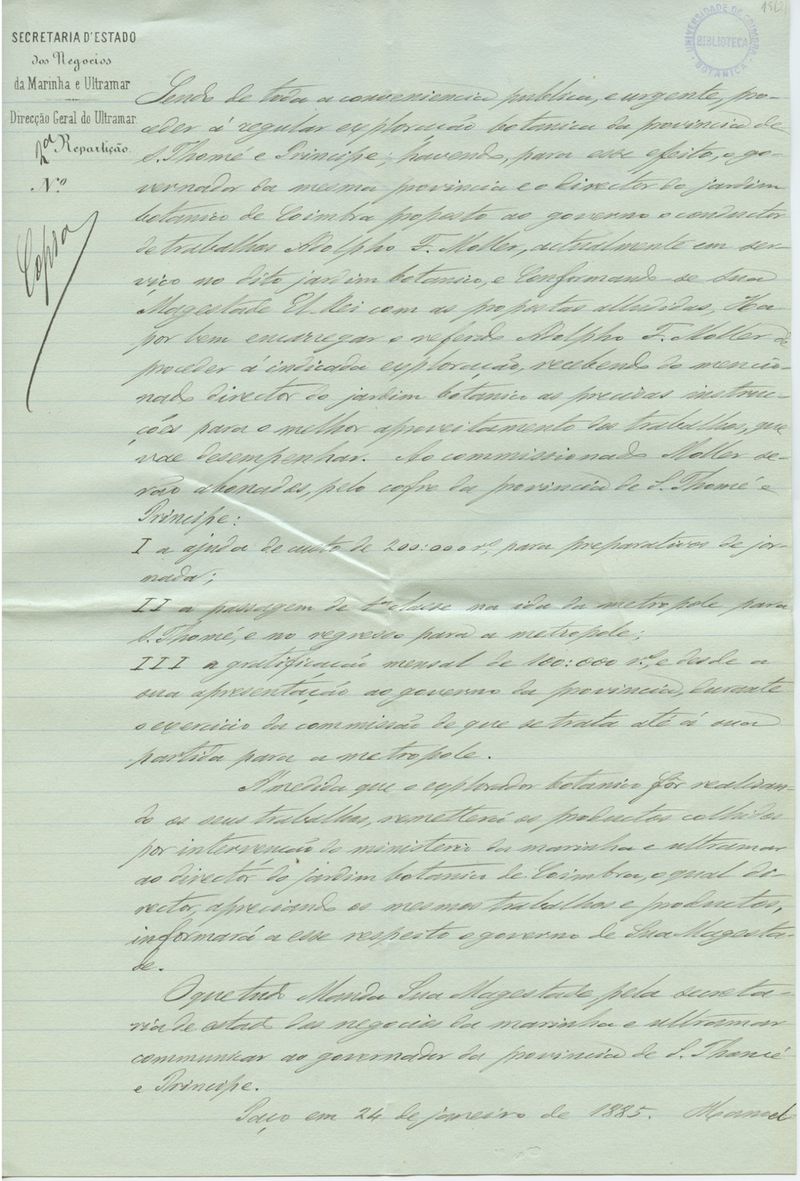 SECRETARIA D'ESTADO
dos Negocios
da Marinha e Ultramar
Direcção Geral do Ultramar
2ª Repartição
N.º
Copia
UNIVERSIDADE DE COIMBRA
BIBLIOTECA
BOTANICA
Sendo de toda a conveniencia publica, e urgente, pro-
ceder á regular exploração botanica da provincia de
S. Thomé e Principe; havendo, para esse efeito, o go-
vernador da mesma provincia e o director do jardim
botanico de Coimbra proposto ao governo o conductor
de trabalhos Adolpho F. Moller, actualmente em ser-
viço no dito jardim botanico, e Conformando-se Sua
Magestade El-Rei com as propostas alludidas, Ha
por bem encarregar o referido Adolpho F. Moller de
proceder á indicada exploração, recebendo do mencio-
nado director do jardim botanico as precisas instruc-
ções para o melhor aproveitamento dos trabalhos, que
vae desempenhar. Ao commissionado Moller se-
rão abonados, pelo cofre da provincia de S. Thomé e
Principe:
I a ajuda de custo de 200:000 rs, para preparativos de jor-
nada;
II a passagem de 1ª classe na ida da metropole para
S. Thomé, e no regresso para a metropole;
III a gratificação mensal de 100:000 rs, e desde a
sua apresentação ao governo da provincia, durante
o exercicio da commissão de que se trata até á sua
partida para a metropole.
Á medida que o explorador botanico fôr realisan-
do os seus trabalhos, remetterá os productos colhidos
por intervenção do ministerio da marinha e ultramar
ao director do jardim botanico de Coimbra, o qual di-
rector, apreciando os mesmos trabalhos e productos,
informará a esse respeito o governo de Sua Magesta-
de.
O que tudo Manda Sua Magestade pela secreta-
ria de estado dos negocios da marinha e ultramar
communicar ao governador da provincia de S. Thomé
e Principe.
Paço em 24 de janeiro de 1885. Manoel